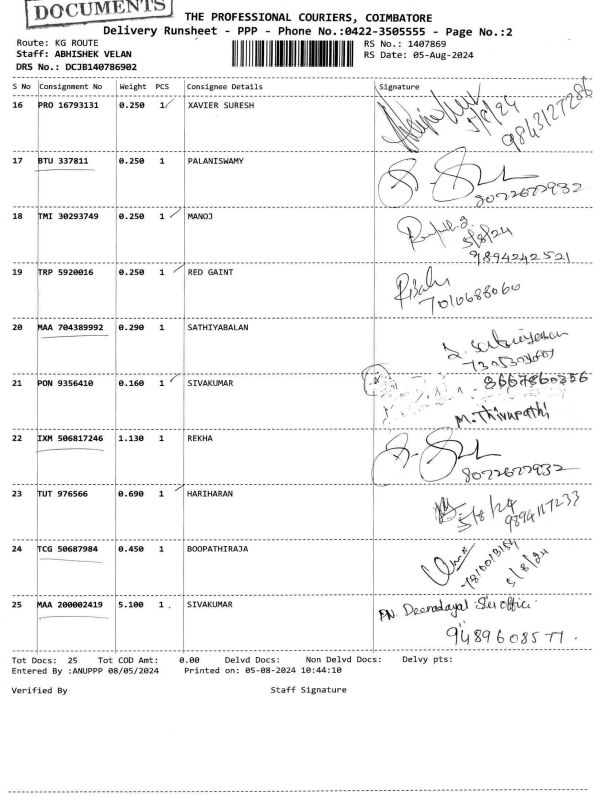 DOCUMENTS
THE PROFESSIONAL COURIERS, COIMBATORE
Delivery Runsheet - PPP - Phone No.:0422-3505555 - Page No.:2
Route: KG ROUTE
RS No.: 1407869
Staff: ABHISHEK VELAN
RS Date: 05-Aug-2024
DRS No.: DCJB140786902
S No Consignment No Weight PCS Consignee Details Signature
16 PRO 16793131 0.250 1 XAVIER SURESH
5/8/24
9843127286
17 BTU 337811 0.250 1 PALANISWAMY
8072677932
18 TMI 30293749 0.250 1 MANOJ
5/8/24
9894242521
19 TRP 5920016 0.250 1 RED GAINT
7010688060
20 MAA 704389992 0.290 1 SATHIYABALAN
21 PON 9356410 0.160 1 SIVAKUMAR
8667860356
M. Thirupathi
22 IXM 506817246 1.130 1 REKHA
8072677932
23 TUT 976566 0.690 1 HARIHARAN
5/8/24
9894117233
24 TCG 50687984 0.450 1 BOOPATHIRAJA
5/8/24
25 MAA 200002419 5.100 1 . SIVAKUMAR
PN. Deenadayal
9489608577.
Tot Docs: 25 Tot COD Amt: 0.00 Delvd Docs: Non Delvd Docs: Delvy pts:
Entered By :ANUPPP 08/05/2024 Printed on: 05-08-2024 10:44:10
Verified By Staff Signature